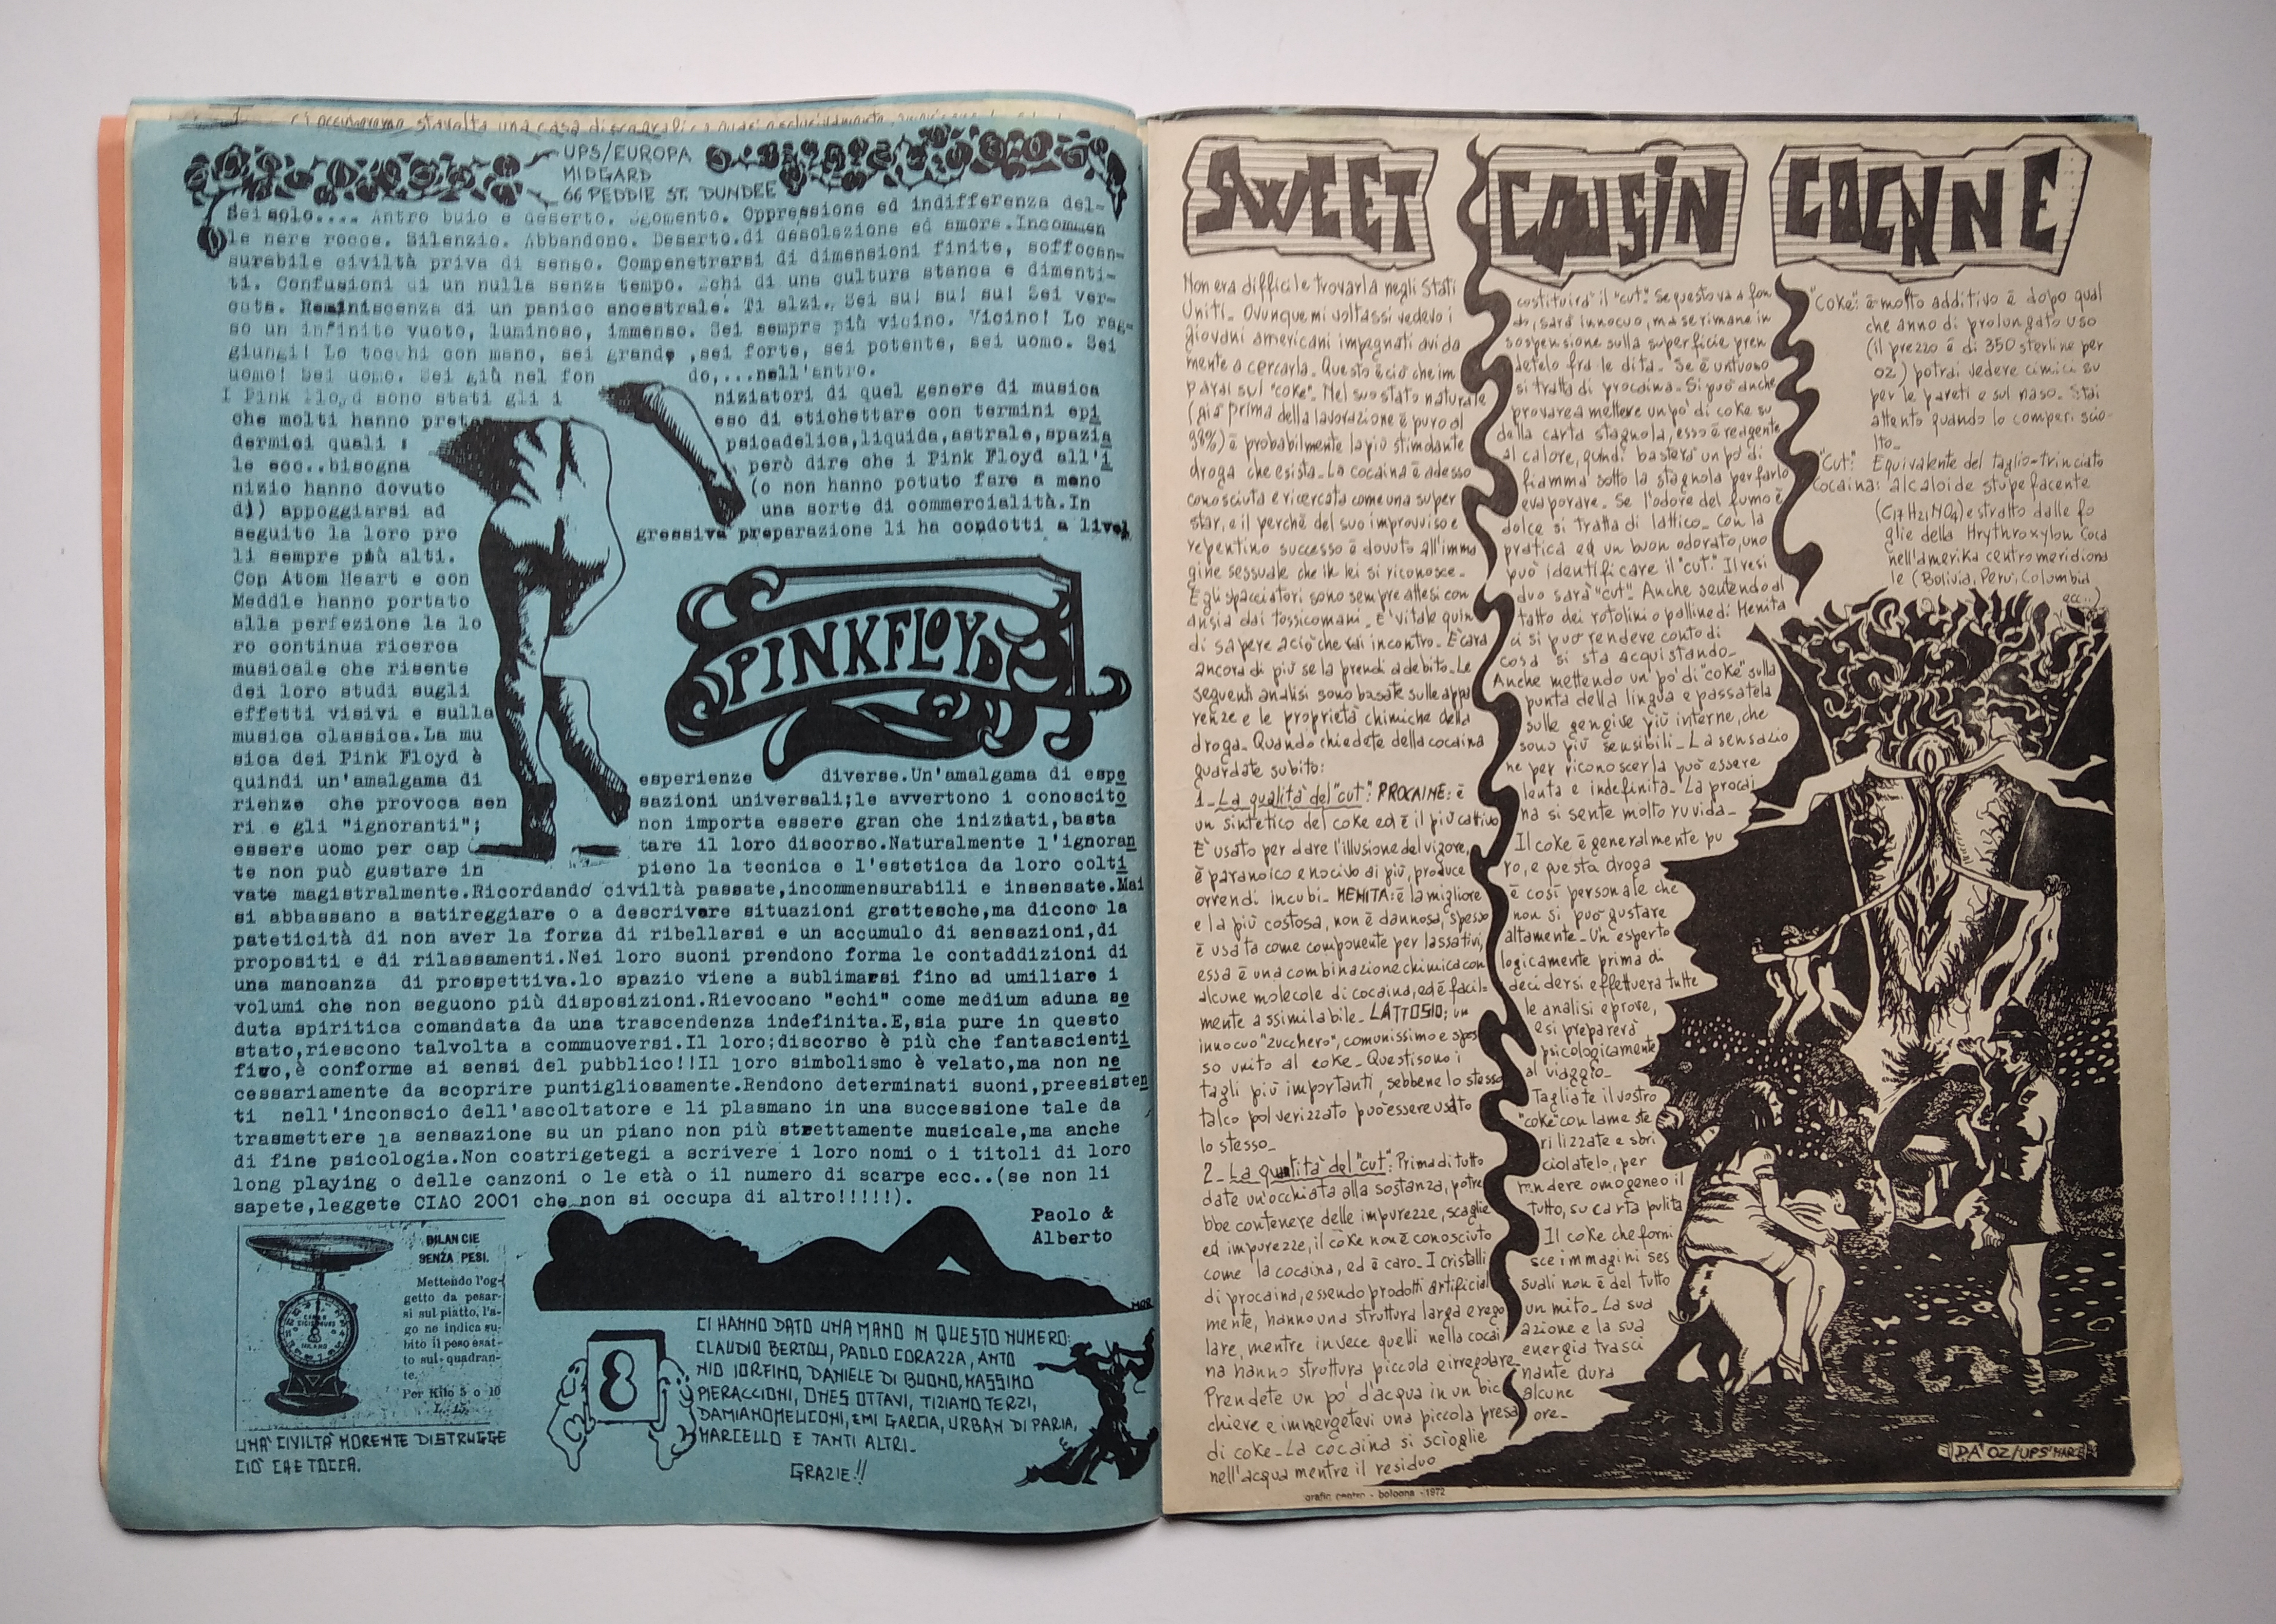 UPS/EUROPA
MIDGARD
66 PEDDIE ST. DUNDEE
Sei solo.... Antro buio e deserto. Sgomento. Oppressione ed indifferenza del-
le nere rocce. Silenzio. Abbandono. Deserto.di desolazione ed amore.Incommen
surabile civiltà priva di senso. Compenetrarsi di dimensioni finite, soffocan-
ti. Confusioni di un nulla senza tempo. Echi di una cultura stanca e dimenti-
cata. Reminiscenza di un panico ancestrale. Ti alzi. Sei su! su! su! Sei ver-
so un infinito vuoto, luminoso, immenso. Sei sempre più vicino. Vicino! Lo rag-
giungi! Lo tocchi con mano, sei grande ,sei forte, sei potente, sei uomo. Sei
uomo! Sei uomo. Sei già nel fon do,...nell'antro.
I Pink Floyd sono stati gli i niziatori di quel genere di musica
che molti hanno pret eso di etichettare con termini epi
dermici quali : psicadelica,liquida,astrale,spazia
le ecc..bisogna però dire che i Pink Floyd all'i
nizio hanno dovuto (o non hanno potuto fare a meno
di) appoggiarsi ad una sorte di commercialità.In
seguito la loro pro gressiva preparazione li ha condotti a livel
li sempre più alti.
Cop Atom Heart e con
Meddle hanno portato
alla perfezione la lo
ro continua ricerca
musicale che risente
dei loro studi sugli
effetti visivi e sulla
musica classica.La mu
sica dei Pink Floyd è
quindi un'amalgama di esperienze diverse.Un'amalgama di espe
rienze che provoca sen sazioni universali;le avvertono i conoscito
ri e gli "ignoranti"; non importa essere gran che iniziati,basta
essere uomo per cap tare il loro discorso.Naturalmente l'ignoran
te non può gustare in pieno la tecnica e l'estetica da loro colti
vate magistralmente.Ricordando civiltà passate,incommensurabili e insensate.Mai
si abbassano a satireggiare o a descrivere situazioni grottesche,ma dicono la
pateticità di non aver la forza di ribellarsi e un accumulo di sensazioni,di
propositi e di rilassamenti.Nei loro suoni prendono forma le contaddizioni di
una mancanza di prospettiva.lo spazio viene a sublimarsi fino ad umiliare i
volumi che non seguono più disposizioni.Rievocano "echi" come medium aduna se
duta spiritica comandata da una trascendenza indefinita.E,sia pure in questo
stato,riescono talvolta a commuoversi.Il loro;discorso è più che fantascienti
fivo,è conforme ai sensi del pubblico!!Il loro simbolismo è velato,ma non ne
cessariamente da scoprire puntigliosamente.Rendono determinati suoni,preesisten
ti nell'inconscio dell'ascoltatore e li plasmano in una successione tale da
trasmettere la sensazione su un piano non più strettamente musicale,ma anche
di fine psicologia.Non costrigetegi a scrivere i loro nomi o i titoli di loro
long playing o delle canzoni o le età o il numero di scarpe ecc..(se non li
sapete,leggete CIAO 2001 che non si occupa di altro!!!!!).
Paolo &
Alberto
PINK FLOYD
BILANCIE
SENZA PESI.
Mettendo l'og-
getto da pesar-
si sul piatto, l'a-
go ne indica su-
bito il peso esat-
to sul quadran-
te.
Per Kilo 5 o 10
UNA CIVILTÀ MORENTE DISTRUGGE
CIÒ CHE TOCCA.
8
MOR
CI HANNO DATO UNA MANO IN QUESTO NUMERO:
CLAUDIO BERTOLI, PAOLO CORAZZA, ANTO
NIO IORFINO, DANIELE DI BUONO, MASSIMO
PIERACCIONI, ONES OTTAVI, TIZIANO TERZI,
DAMIANO MELICONI, EMI GARCIA, URBAN DI PARIA,
MARCELLO E TANTI ALTRI_
GRAZIE!!
SWEET COUSIN COCAINE
Non era difficile trovarla negli Stati
Uniti_ Ovunque mi voltassi vedevo i
giovani americani impegnati avida
mente a cercarla_ Questo è ciò che im
parai sul "coke"_ Nel suo stato naturale
(già prima della lavorazione è puro al
98%) è probabilmente la più stimolante
droga che esista_ La cocaina è adesso
conosciuta e ricercata come una super
star, e il perchè del suo improvviso e
repentino successo è dovuto all'imma
gine sessuale che in lei si riconosce_
E gli spacciatori sono sempre attesi con
ansia dai tossicomani_ E' vitale quin
di sapere a ciò che vai incontro_ E' cara
ancora di più se la prendi a debito_ Le
seguenti analisi sono basate sulle appa
renze e le proprietà chimiche della
droga_ Quando chiedete della cocaina
guardate subito:
1_ La qualità del "cut": PROCAINE: è
un sintetico del coke ed è il più cattivo
E' usato per dare l'illusione del vigore,
è paranoico e nocivo di più, produce
orrendi incubi_ MENITA: è la migliore
e la più costosa, non è dannosa, spesso
è usata come componente per lassativi,
essa è una combinazione chimica con
alcune molecole di cocaina, ed è facil=
mente assimilabile_ LATTOSIO: un
innocuo "zucchero", comunissimo e spes
so unito al coke_ Questi sono i
tagli più importanti, sebbene lo stesso
talco polverizzato può essere usato
lo stesso_
2_ La quantità del "cut": Prima di tutto
date un'occhiata alla sostanza, potre
bbe contenere delle impurezze, scaglie
ed impurezze, il coke non è conosciuto
come la cocaina, ed è caro_ I cristalli
di procaina, essendo prodotti artificial
mente, hanno una struttura larga e rego
lare, mentre invece quelli nella cocai
na hanno struttura piccola e irregolare_
Prendete un po' d'acqua in un bic
chiere e immergetevi una piccola presa
di coke_ La cocaina si scioglie
nell'acqua mentre il residuo
costituirà il "cut". Se questo va a fon
do, sarà innocuo, ma se rimane in
sospensione sulla superficie pren
detelo fra le dita_ Se è untuoso
si tratta di procaina_ Si può anche
provare a mettere un po' di coke su
della carta stagnola, esso è reagente
al calore, quindi basterà un po' di
fiamma sotto la stagnola per farlo
evaporare_ Se l'odore del fumo è
dolce si tratta di lattico_ Con la
pratica ed un buon odorato, uno
può identificare il "cut". Il resi
duo sarà "cut". Anche sentendo al
tatto dei rotolini o palline di Menita
ci si può rendere conto di
cosa si sta acquistando_
Anche mettendo un po' di "coke" sulla
punta della lingua e passatela
sulle gengive più interne, che
sono più sensibili_ La sensazio
ne per riconoscerla può essere
lenta e indefinita_ La procai
na si sente molto ruvida_
Il coke è generalmente pu
ro, e questa droga
è così personale che
non si può gustare
altamente_ Un esperto
logicamente prima di
decidersi effettuerà tutte
le analisi e prove,
e si preparerà
psicologicamente
al viaggio_
Tagliate il vostro
"coke" con lame ste
rilizzate e sbri
ciolatelo, per
rendere omogeneo il
tutto, su carta pulita
Il coke che forni
sce immagini ses
suali non è del tutto
un mito_ La sua
azione e la sua
energia trasci
nante dura
alcune
ore_
"Coke": è molto additivo è dopo qual
che anno di prolungato uso
(il prezzo è di 350 sterline per
oz) potrai vedere cimici su
per le pareti e sul naso_ Stai
attento quando lo comperi sciol-
to_
"Cut": Equivalente del taglio-trinciato
Cocaina: alcaloide stupefacente
(C17 H21 NO4) estratto dalle fo
glie della Hrythroxylon Coca
nell'amerika centromeridiona
le (Bolivia, Perù, Columbia
ecc..)
DA' OZ/UPS
grafic centro - bologna - 1972